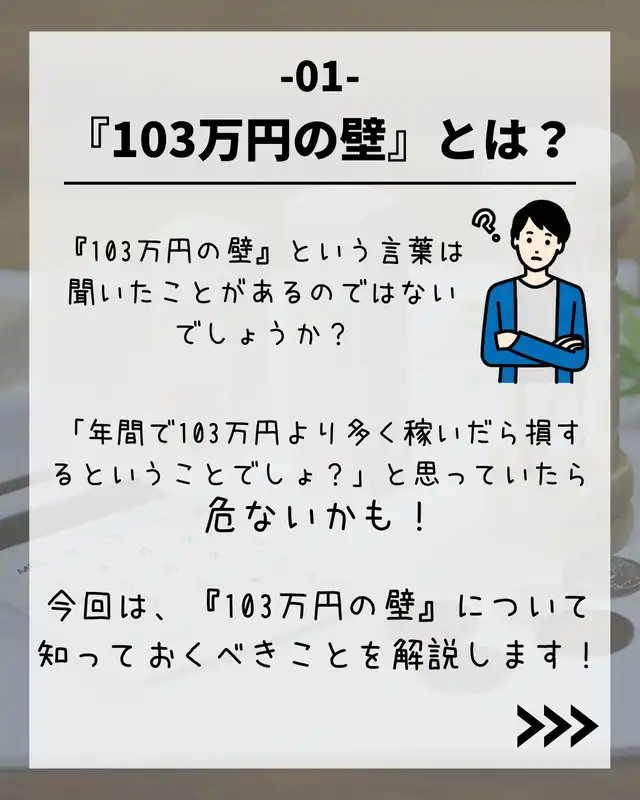 -01-
『103万円の壁』とは？
『103万円の壁』という言葉は
聞いたことがあるのではない
でしょうか？
「年間で103万円より多く稼いだら損す
るということでしょ？」と思っていたら
危ないかも！
今回は、『103万円の壁』について
知っておくべきことを解説します！